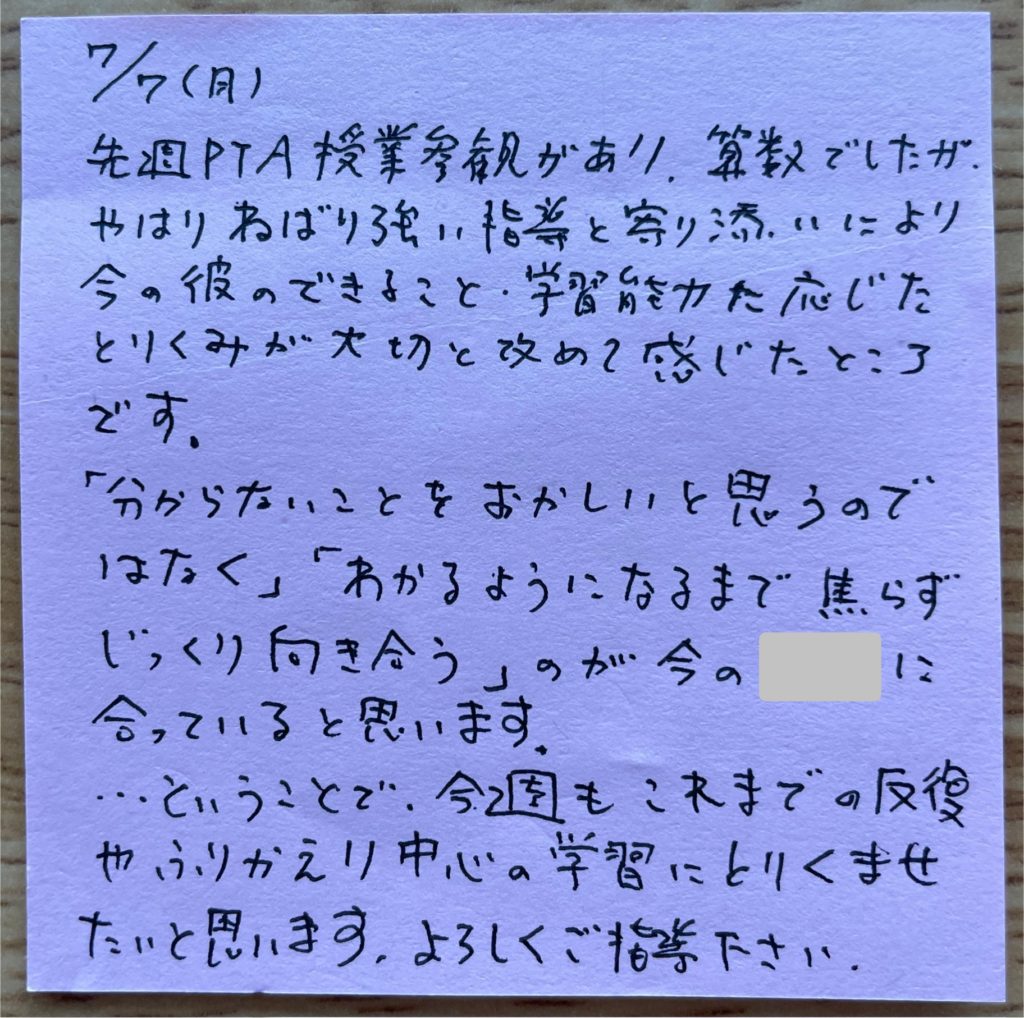 7/7(月)
先週PTA授業参観があり、算数でしたが、
やはりねばり強い指導と寄り添いにより
今の彼のできること・学習能力た応じた
とりくみが大切と改めて感じたところ
です。
「分からないことをおかしいと思うので
はなく」「わかるようになるまで焦らず
じっくり向き合う」のが今の に
合っていると思います。
…ということで、今週もこれまでの反復
やふりかえり中心の学習にとりくませ
たいと思います。よろしくご指導下さい。